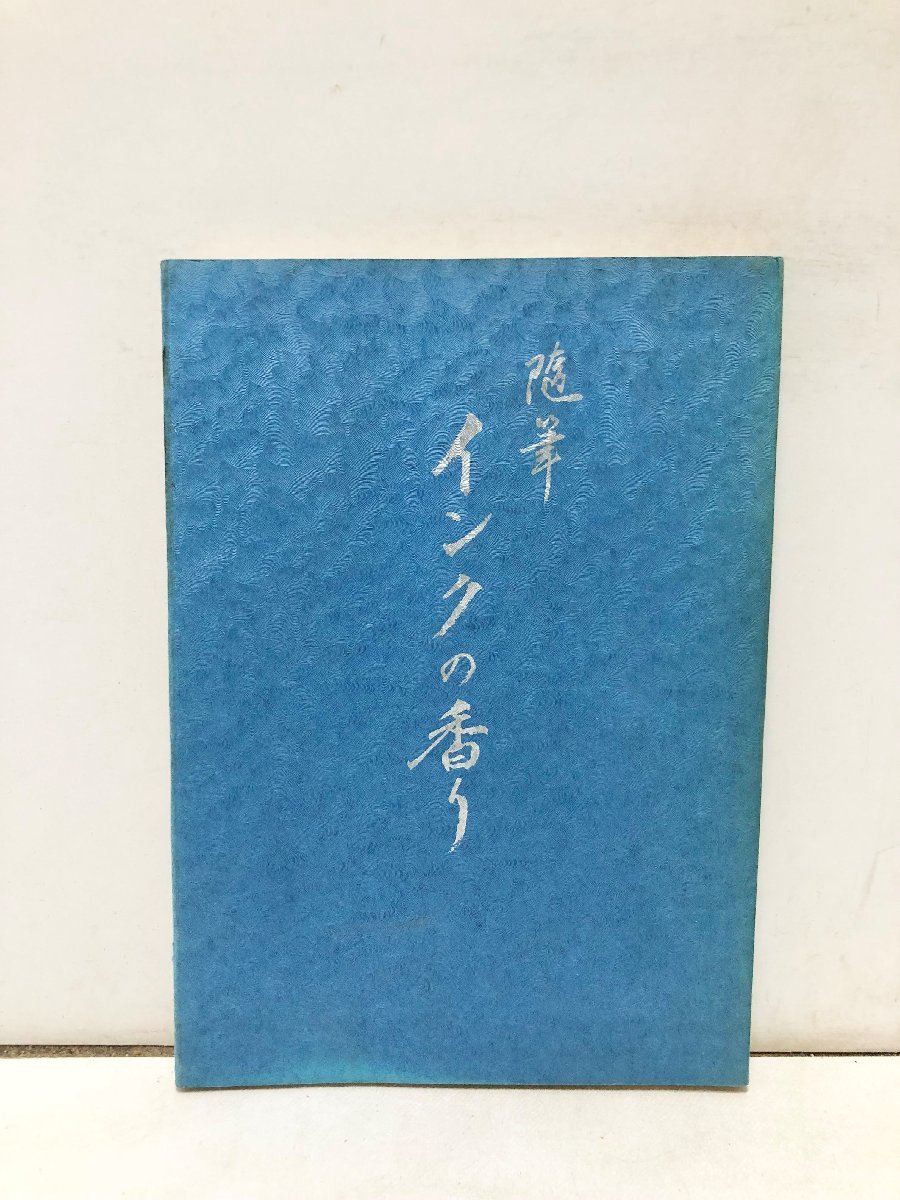 随筆
インクの香り